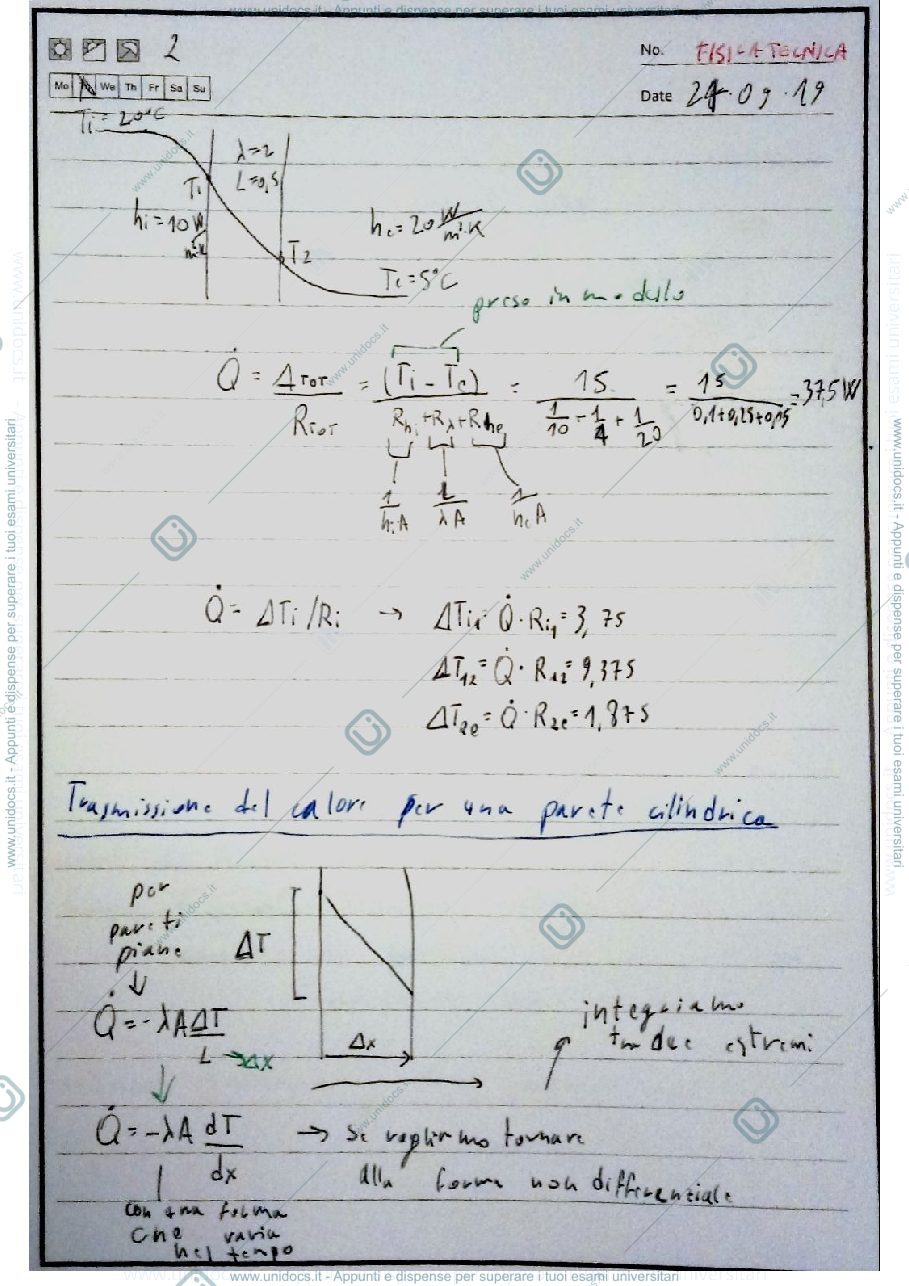 www.unidocs.it - Appunti e dispense per superare i tuoi esami universitari
2
No. FISICA TECNICA
Mo We Th Fr Sa Su
Date 24·09·19
Ti = 20°C
λ=2
L=0,5
T1
hi=10 W/m²K
he=20 W/m²K
T2
Te=5°C
preso in modulo
Q̇ = Δ TOT / RTOT = (Ti - Te) / (Rhi + Rλ + Rhe) = 15 / (1/10 - 1/4 + 1/20) = 15 / (0,1+0,25+0,05) = 37,5 W
1/hiA L/λA 1/heA
Q̇ = ΔTi /Ri → ΔTi1 = Q̇ · Ri1 = 3,75
ΔT12 = Q̇ · R12 = 9,375
ΔT2e = Q̇ · R2e = 1,875
Trasmissione del calore per una parete cilindrica
per
pareti
piane
ΔT
Δx
Q̇ = -λA ΔT/L → Δx
integriamo
tra due estremi
Q̇ = -λA dT/dx → Se vogliamo tornare
alla forma non differenziale
con una forma
che varia
nel tempo
www.unidocs.it - Appunti e dispense per superare i tuoi esami universitari